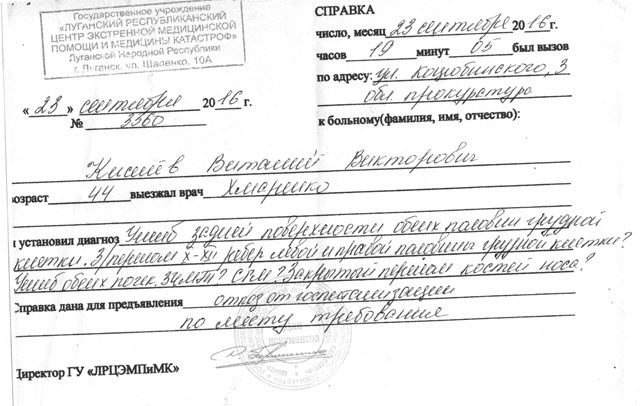 Государственное учреждение
«ЛУГАНСКИЙ РЕСПУБЛИКАНСКИЙ
ЦЕНТР ЭКСТРЕННОЙ МЕДИЦИНСКОЙ
ПОМОЩИ И МЕДИЦИНЫ КАТАСТРОФ»
Луганской Народной Республики
г. Луганск, ул. Щаденко, 10А
« 23 » сентября 2016 г.
№ 3360
СПРАВКА
число, месяц 23 сентября 2016 г.
часов 19 минут 05 был вызов
по адресу: ул. Коцюбинского, 3
обл. прокуратура
к больному(фамилия, имя, отчество):
Киселёв Виталий Викторович
озраст 44 выезжал врач
установил диагноз Ушиб задней поверхности обеих половин грудной
клетки. З/перелом X-XII ребер левой и правой половины грудной клетки?
Ушиб обеих почек. ЗЧМТ? СГМ? Закрытый перелом костей носа?
Справка дана для предъявления отказ от госпитализации
по месту требования
Директор ГУ «ЛРЦЭМПиМК»